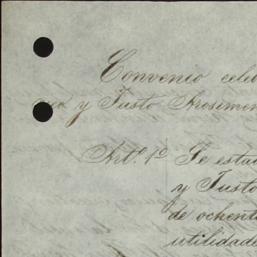 Convenio cele
y Justo Arosemen
Art.º 1º Se esta
y Justo
de ochent
utilidade